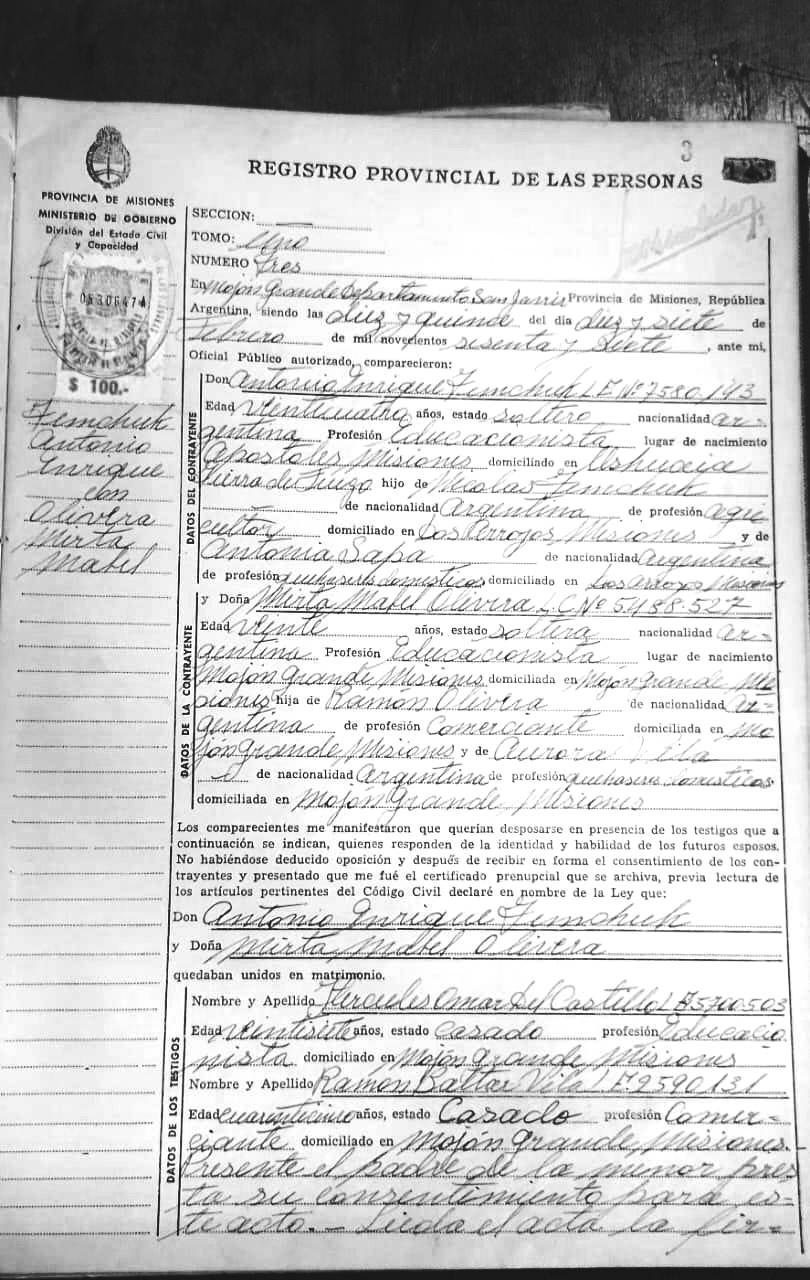 3
REGISTRO PROVINCIAL DE LAS PERSONAS
PROVINCIA DE MISIONES
MINISTERIO DE GOBIERNO
División del Estado Civil
y Capacidad
$ 100.-
Antonio
Enrique
con
Olivera
Mirta
Mabel
SECCION: —
TOMO: Uno
NUMERO Tres
En Mojón Grande Departamento San Javier Provincia de Misiones, República
Argentina, siendo las diez y quince del día diez y siete de
febrero de mil novecientos sesenta y siete, ante mi,
Oficial Público autorizado, comparecieron:
DATOS DEL CONTRAYENTE
Don Antonio Enrique L E Nº 7580193
Edad veinticuatro años, estado soltero nacionalidad ar-
gentina Profesión Educacionista lugar de nacimiento
Apostoles Misiones domiciliado en Ushuaia
Tierra de Fuego hijo de Nicolas
de nacionalidad Argentina de profesión agri
cultor domiciliado en Los Arroyos, Misiones y de
Antonia Sapa de nacionalidad Argentina
de profesión quehaseres domesticos domiciliado en Los Arroyos Misiones
DATOS DE LA CONTRAYENTE
y Doña Mirta Mabel Olivera L.C Nº 5.488.527
Edad veinte años, estado soltera nacionalidad ar-
gentina Profesión Educacionista lugar de nacimiento
Mojón Grande Misiones domiciliada en Mojón Grande Mi
siones hija de Ramon Olivera de nacionalidad Ar-
gentina de profesión Comerciante domiciliada en Mo
jón Grande, Misiones y de Aurora Vila
de nacionalidad Argentina de profesión quehaseres domesticos
domiciliada en Mojón Grande, Misiones
Los comparecientes me manifestaron que querían desposarse en presencia de los testigos que a
continuación se indican, quienes responden de la identidad y habilidad de los futuros esposos.
No habiéndose deducido oposición y después de recibir en forma el consentimiento de los con-
trayentes y presentado que me fué el certificado prenupcial que se archiva, previa lectura de
los artículos pertinentes del Código Civil declaré en nombre de la Ley que:
Don Antonio Enrique
y Doña Mirta Mabel Olivera
quedaban unidos en matrimonio.
DATOS DE LOS TESTIGOS
Nombre y Apellido Hercules Omar Del Castillo L E 5700503
Edad veintisiete años, estado casado profesión Educacio
nista domiciliado en Mojón Grande Misiones
Nombre y Apellido Ramon Baltar Vila L E. 2590131
Edad cuarenticinco años, estado Casado profesión Comer-
ciante domiciliado en Mojón Grande, Misiones.-
Presente el padre de la menor pres
ta su consentimiento para es-
te acto.- Leida el acta la fir-